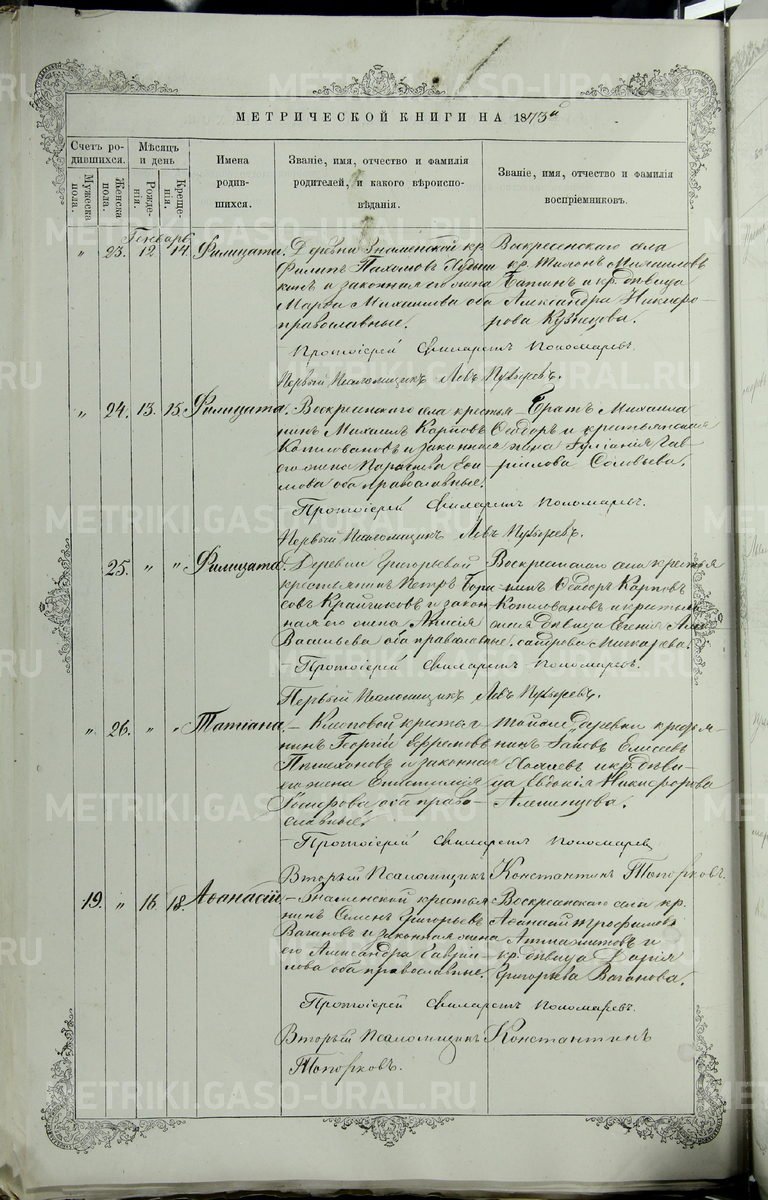 МЕТРИЧЕСКОЙ КНИГИ НА 1873й
Счетъ родившихся.
Мужеска пола.
Женска пола.
Мѣсяцъ и день
Рожденія.
Крещенія.
Имена родившихся.
Званіе, имя, отчество и фамилія родителей, и какого вѣроисповѣданія.
Званіе, имя, отчество и фамилія воспріемниковъ.
Генварь
„ 23. 12 14 Филицата.
Деревни Знаменской кр.
Филипъ Пахомовъ
и законная его жена
Марѳа Михаилова оба
православные.
Воскресенскаго села
кр. Михаиловъ
и кр. дѣвица
Александра Никифо-
рова Кузнецова.
Протоіерей Филаретъ Пономаревъ.
Первый Псаломщикъ Левъ
„ 24. 13. 15. Филицата.
Воскресенскаго села крестья-
нинъ Михаилъ Карповъ
Копыловановъ и законная
его жена
оба православные.
Братъ Михаила
Ѳеодоръ и крестьянская
жена Іуліанія Гав-
риилова Соловьева.
Протоіерей Филаретъ Пономаревъ.
Первый Псаломщикъ Левъ
25. „ „ Филицата.
Деревни Григорьевой
крестьянинъ Петръ Бори-
совъ и закон-
ная его жена Анисія
Васильева оба православные.
Воскресенскаго села крестья-
нинъ Ѳеодоръ Карповъ
и крестьян-
ская дѣвица Евгенія Алек-
сандрова
Протоіерей Филаретъ Пономаревъ.
Первый Псаломщикъ Левъ
„ 26. „ „ Татіана.
крестья-
нинъ Георгій Ефремовъ
и законная
его жена Епистимія
оба право-
славные.
Той же деревни крестья-
нинъ Іаковъ Елисеевъ
и кр. дѣви-
ца Евдокія Никифорова
Протоіерей Филаретъ Пономаревъ
Вторый Псаломщикъ Константинъ Топорковъ.
19. „ 16 18. Аѳанасій
Знаменской крестья-
нинъ Семенъ Григорьевъ
Вагановъ и законная жена
его Александра Гавріи-
лова оба православные.
Воскресенскаго села кр.
Аѳанасій Трофимовъ
и
кр. дѣвица Дарія
Григорьева Ваганова.
Протоіерей Филаретъ Пономаревъ.
Вторый Псаломщикъ Константинъ
Топорковъ.
METRIKI.GASO-URAL.RU